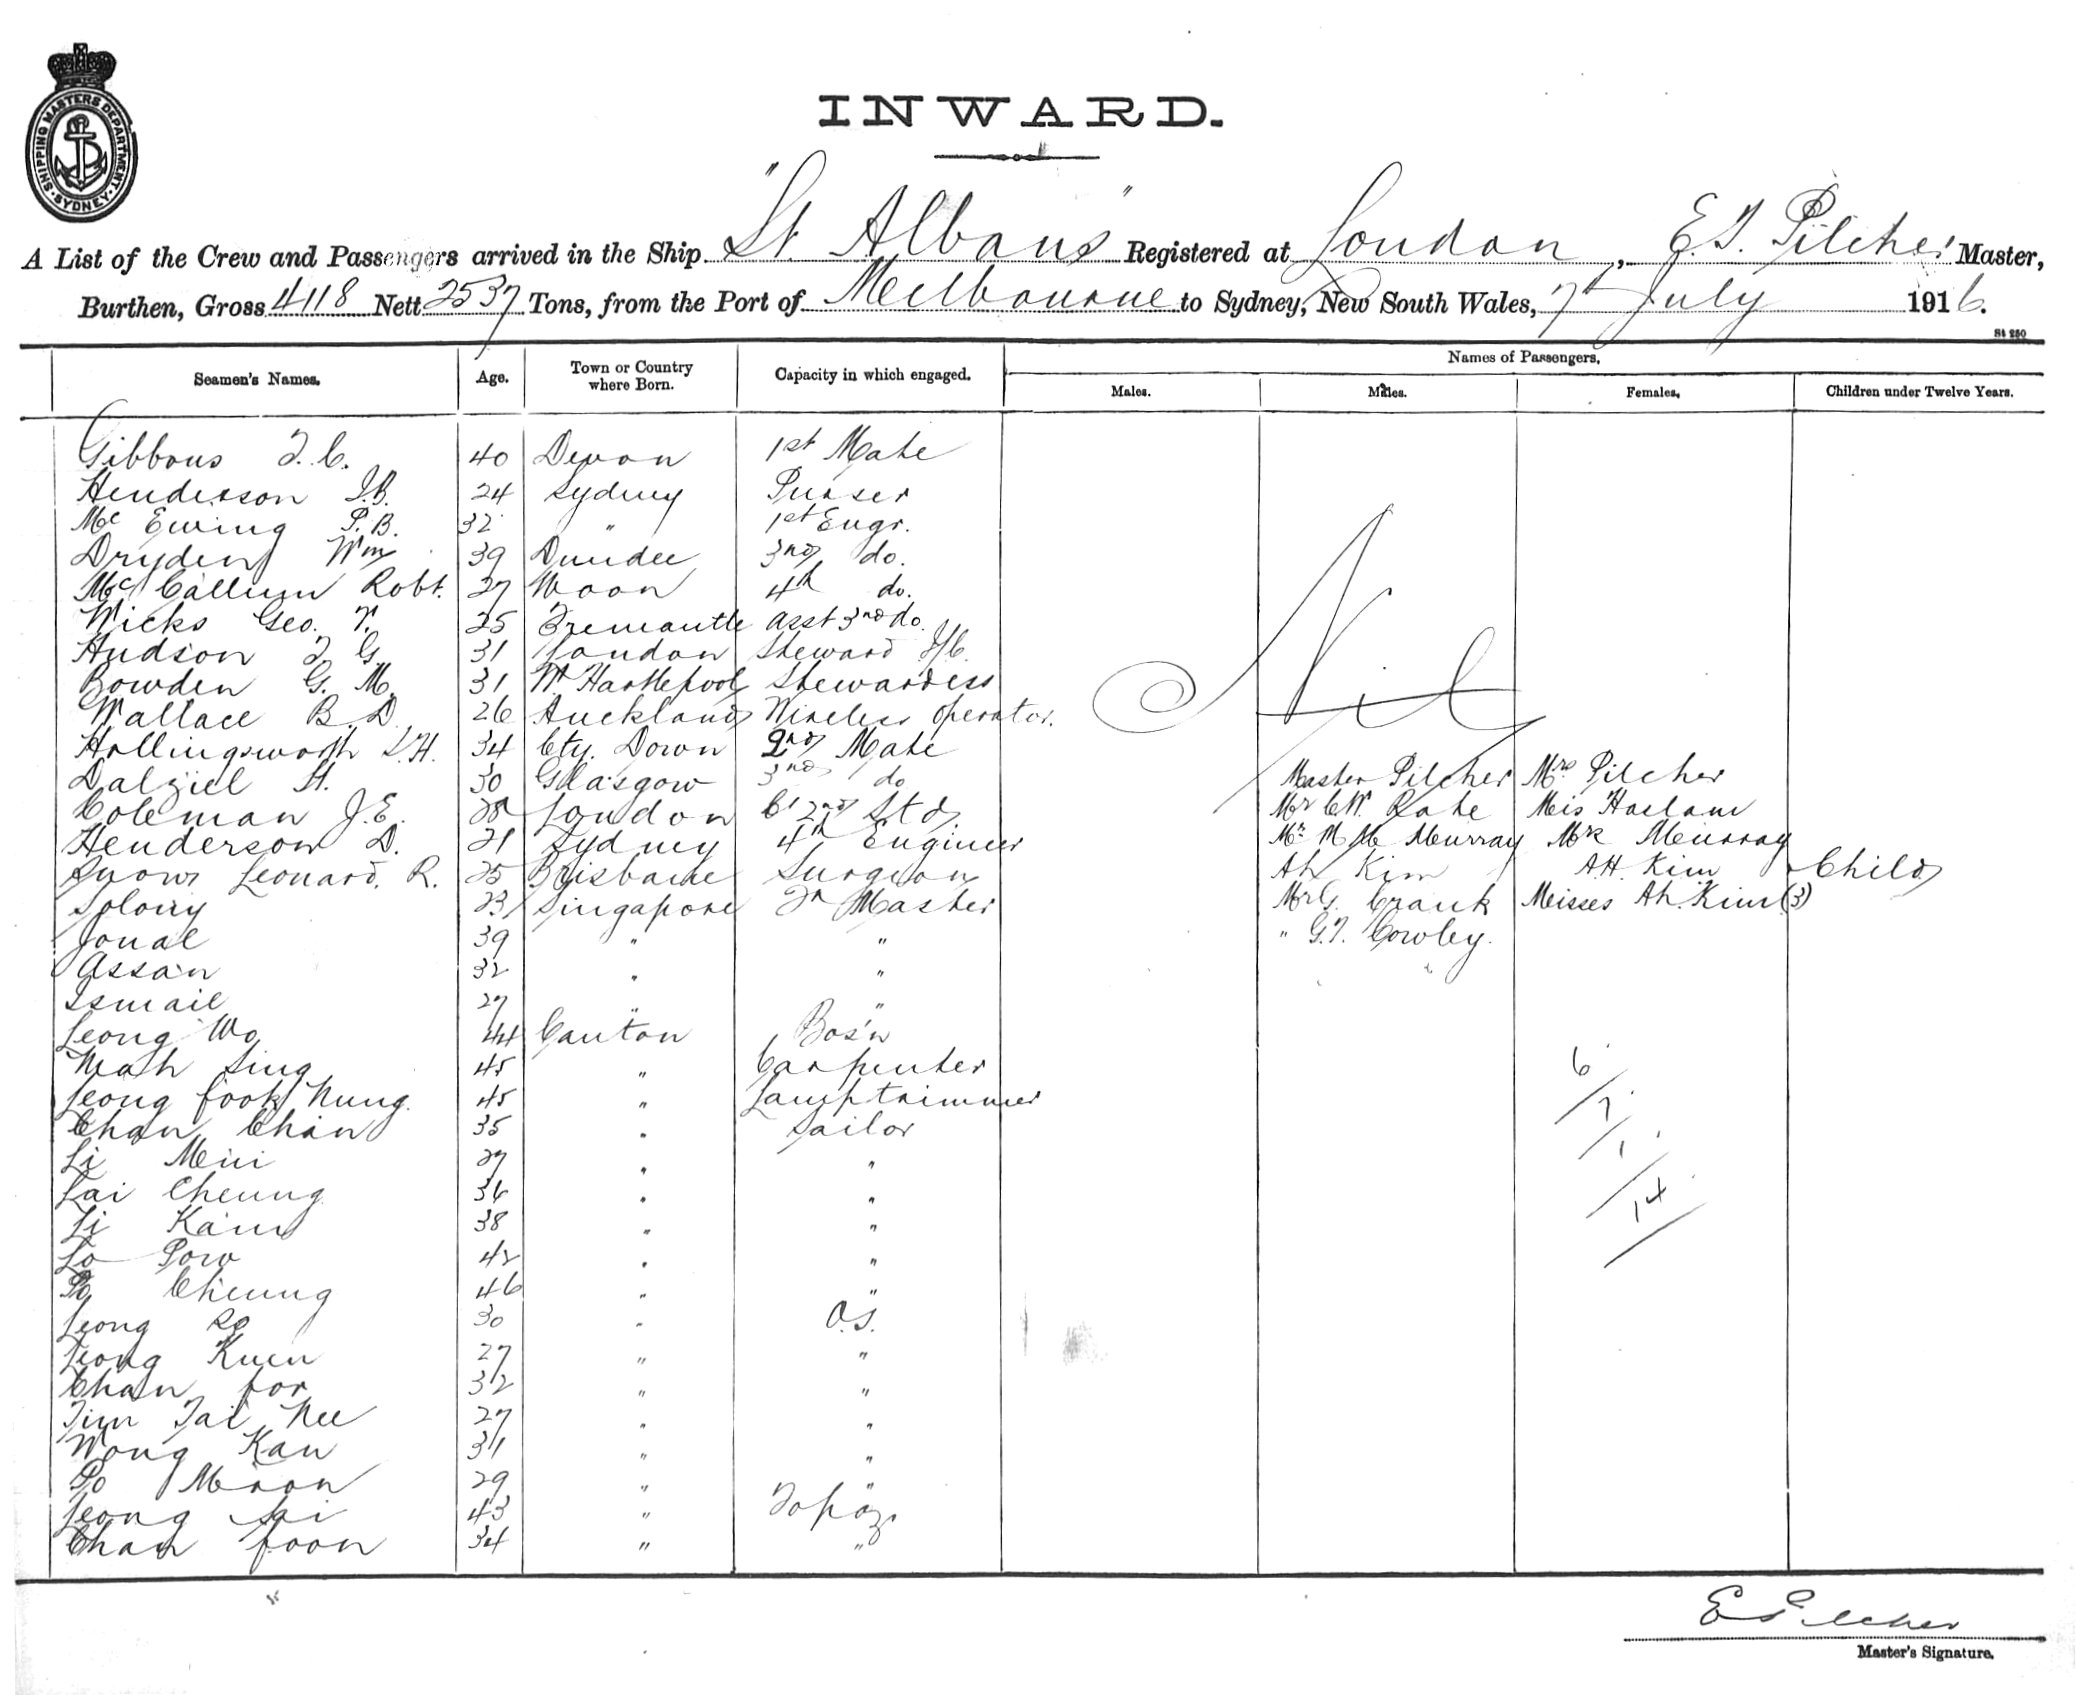 SHIPPING MASTERS DEPARTMENT · SYDNEY ·
INWARD.
A List of the Crew and Passengers arrived in the Ship "St. Albans" Registered at London, E.T. Pilcher Master,
Burthen, Gross 4118 Nett 2537 Tons, from the Port of Melbourne to Sydney, New South Wales, 7th July 1916.
St 250
Seamen's Names. Age. Town or Country where Born. Capacity in which engaged. Names of Passengers.
Males. Males. Females. Children under Twelve Years.
Gibbons T. C. 40 Devon 1st Mate
Henderson J.B. 24 Sydney Purser
Mc Ewing P.B. 32 " 1st Engr.
Dryden Wm 39 Dundee 3rd do.
McCallum Robt. 27 Moon 4th do.
Wicks Geo. T. 25 Fremantle Asst 3rd do.
Hudson T G. 31 London Steward
Bowden G. M. 31 W. Hartlepool Stewardess
Nil
Wallace B. D. 26 Auckland Wireless operator.
Hollingsworth L.H. 34 Cty. Down 2nd Mate
Dalziel H. 30 Glasgow 3rd do Master Pilcher Mrs Pilcher
Coleman J.E. 28 London 2nd Std Mr C.W. Rate Mis Haslam
Henderson D. 21 Sydney 4th Engineer Mr M Mc Murray Mrs Murray
Snow Leonard. R. 25 Brisbane Surgeon Ah Kim AH. Kim Child
23 Singapore Qr Master Mr G. Crank Misses Ah. Kim (3)
Jonal 39 " " " G.T. Cowley.
Assan 32 " "
Ismail 27 " "
Leong Wo 44 Canton Bos'n
Mah Sing 45 " Carpenter
Leong Fook Nung. 45 " Lamptrimmer
Chan Chan 35 " Sailor
Li Mui 27 " "
Lai Cheung 36 " "
Li Kam 38 " "
Lo Pow 42 " "
Po Cheung 46 " "
Leong 30 " O.S.
Leong Kuen 27 " "
Chan For 32 " "
Tim Tai Nee 27 " "
Wong Kan 31 " "
Po Moon 29 " "
Leong Sai 43 " Topaz
Chan Foon 34 " "
6
7
1
14
E Pilcher
Master's Signature.